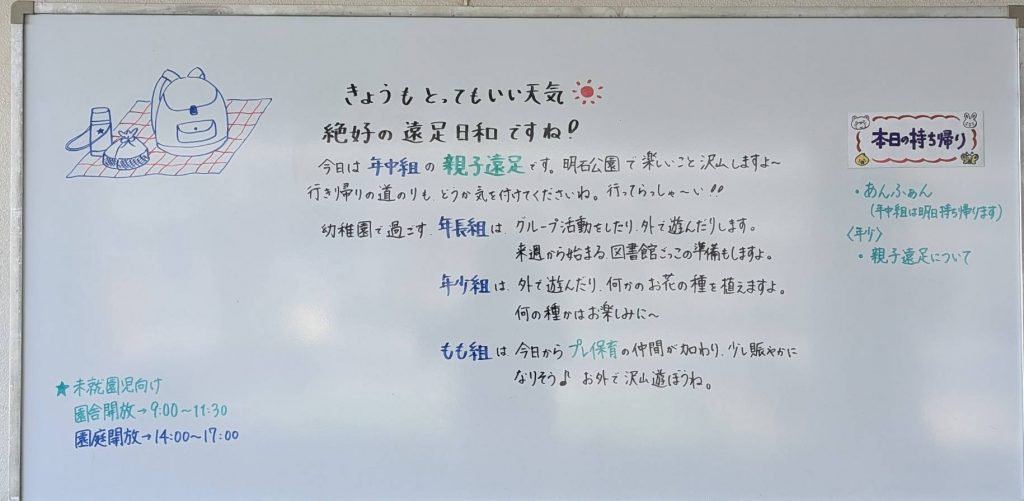 きょうもとってもいい天気
絶好の遠足日和ですね!
今日は年中組の親子遠足です。明石公園で楽しいこと沢山しますよ〜
行き帰りの道のりも、どうか気を付けてくださいね。行ってらっしゃ〜い!!
幼稚園で過ごす、年長組は、グループ活動をしたり、外で遊んだりします。
来週から始まる図書館ごっこの準備もしますよ。
年少組は、外で遊んだり、何かのお花の種を植えますよ。
何の種かはお楽しみに〜
もも組は今日からプレ保育の仲間が加わり、少し賑やかに
なりそう♪ お外で沢山遊ぼうね。
本日の持ち帰り
・あんふぁん
(年中組は明日持ち帰ります)
〈年少〉
・親子遠足について
★未就園児向け
園舎開放→9:00〜11:30
園庭開放→14:00〜17:00